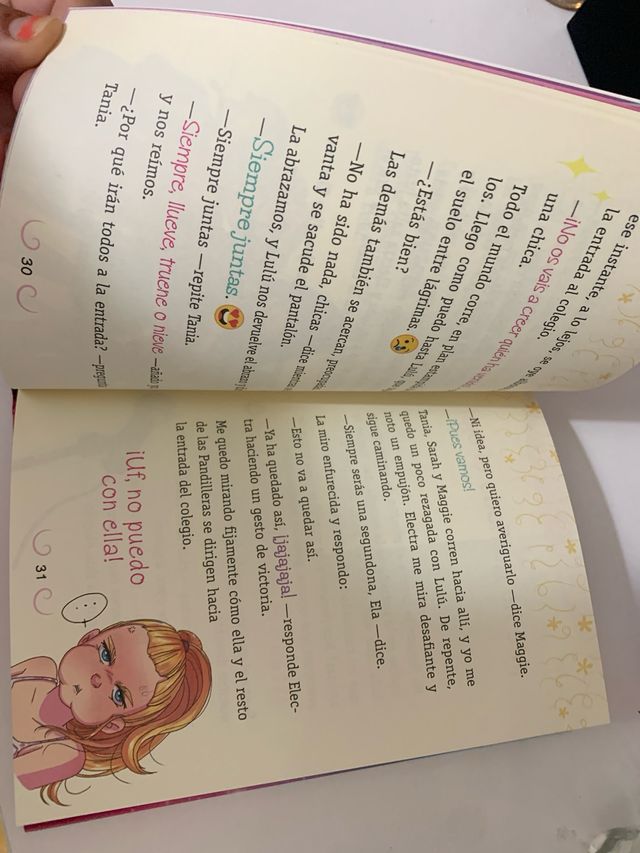 ese instante, a lo lejos, se oye
la entrada al colegio.
—¡No os vais a creer quién ha
una chica.
Todo el mundo corre, en plan
los. Llego como puedo hasta Lulú,
el suelo entre lágrimas.
—¿Estás bien?
Las demás también se acercan,
—No ha sido nada, chicas —dice
vanta y se sacude el pantalón.
La abrazamos, y Lulú nos devuelve el abrazo
—Siempre juntas.
—Siempre juntas —repite Tania.
—Siempre, llueve, truene o nieve —añado
y nos reímos.
—¿Por qué irán todos a la entrada? —pregunta
Tania.
30
—Ni idea, pero quiero averiguarlo —dice Maggie.
—¡Pues vamos!
Tania, Sarah y Maggie corren hacia allí, y yo me
quedo un poco rezagada con Lulú. De repente,
noto un empujón. Electra me mira desafiante y
sigue caminando.
—Siempre serás una segundona, Ela —dice.
La miro enfurecida y respondo:
—Esto no va a quedar así.
—Ya ha quedado así, ¡jajajaja! —responde Elec-
tra haciendo un gesto de victoria.
Me quedo mirando fijamente cómo ella y el resto
de las Pandilleras se dirigen hacia
la entrada del colegio.
¡Uf, no puedo
con ella!
31